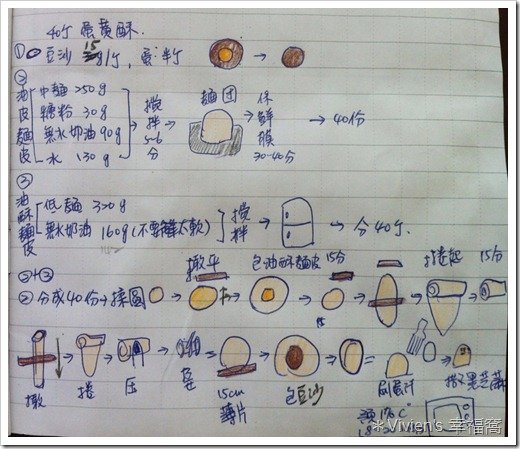 40個 蛋黃酥.
① 豆沙 15g/個, 蛋 半個
②
油皮麵皮
中麵 250g
糖粉 30g
無水奶油 90g
水 130g
攪拌 5~6分
麵団
保鮮膜 30~40分
40份
③
油酥麵皮
低麵 320g
無水奶油 160g (不要太軟)
攪拌
分40個.
②+③
② 分成40份→揉圓
擀平
包油酥麵皮
15分
捲起
15分
擀
捲
壓
15cm 薄片
包豆沙
刷蛋汁
撒黑芝麻
預170°C
Vivien's 幸福窩